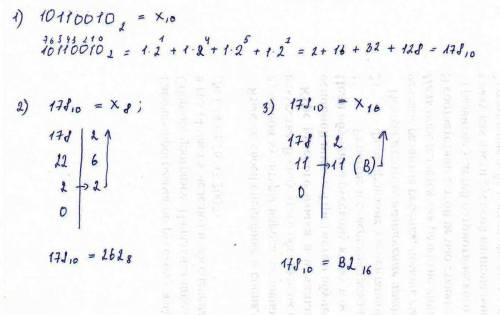 1) 10110010₂ = X₁₀
7 6 5 4 3 2 1 0
10110010₂ = 1·2¹ + 1·2⁴ + 1·2⁵ + 1·2⁷ = 2 + 16 + 32 + 128 = 178₁₀
2) 178₁₀ = X₈;
178 | 2
22 | 6
2 → 2
0
178₁₀ = 262₈
3) 178₁₀ = X₁₆
178 | 2
11 → 11 (B)
0
178₁₀ = B2₁₆